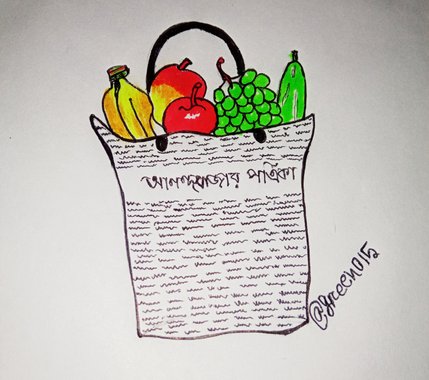 আনন্দবাজার পত্রিকা
@greeen015